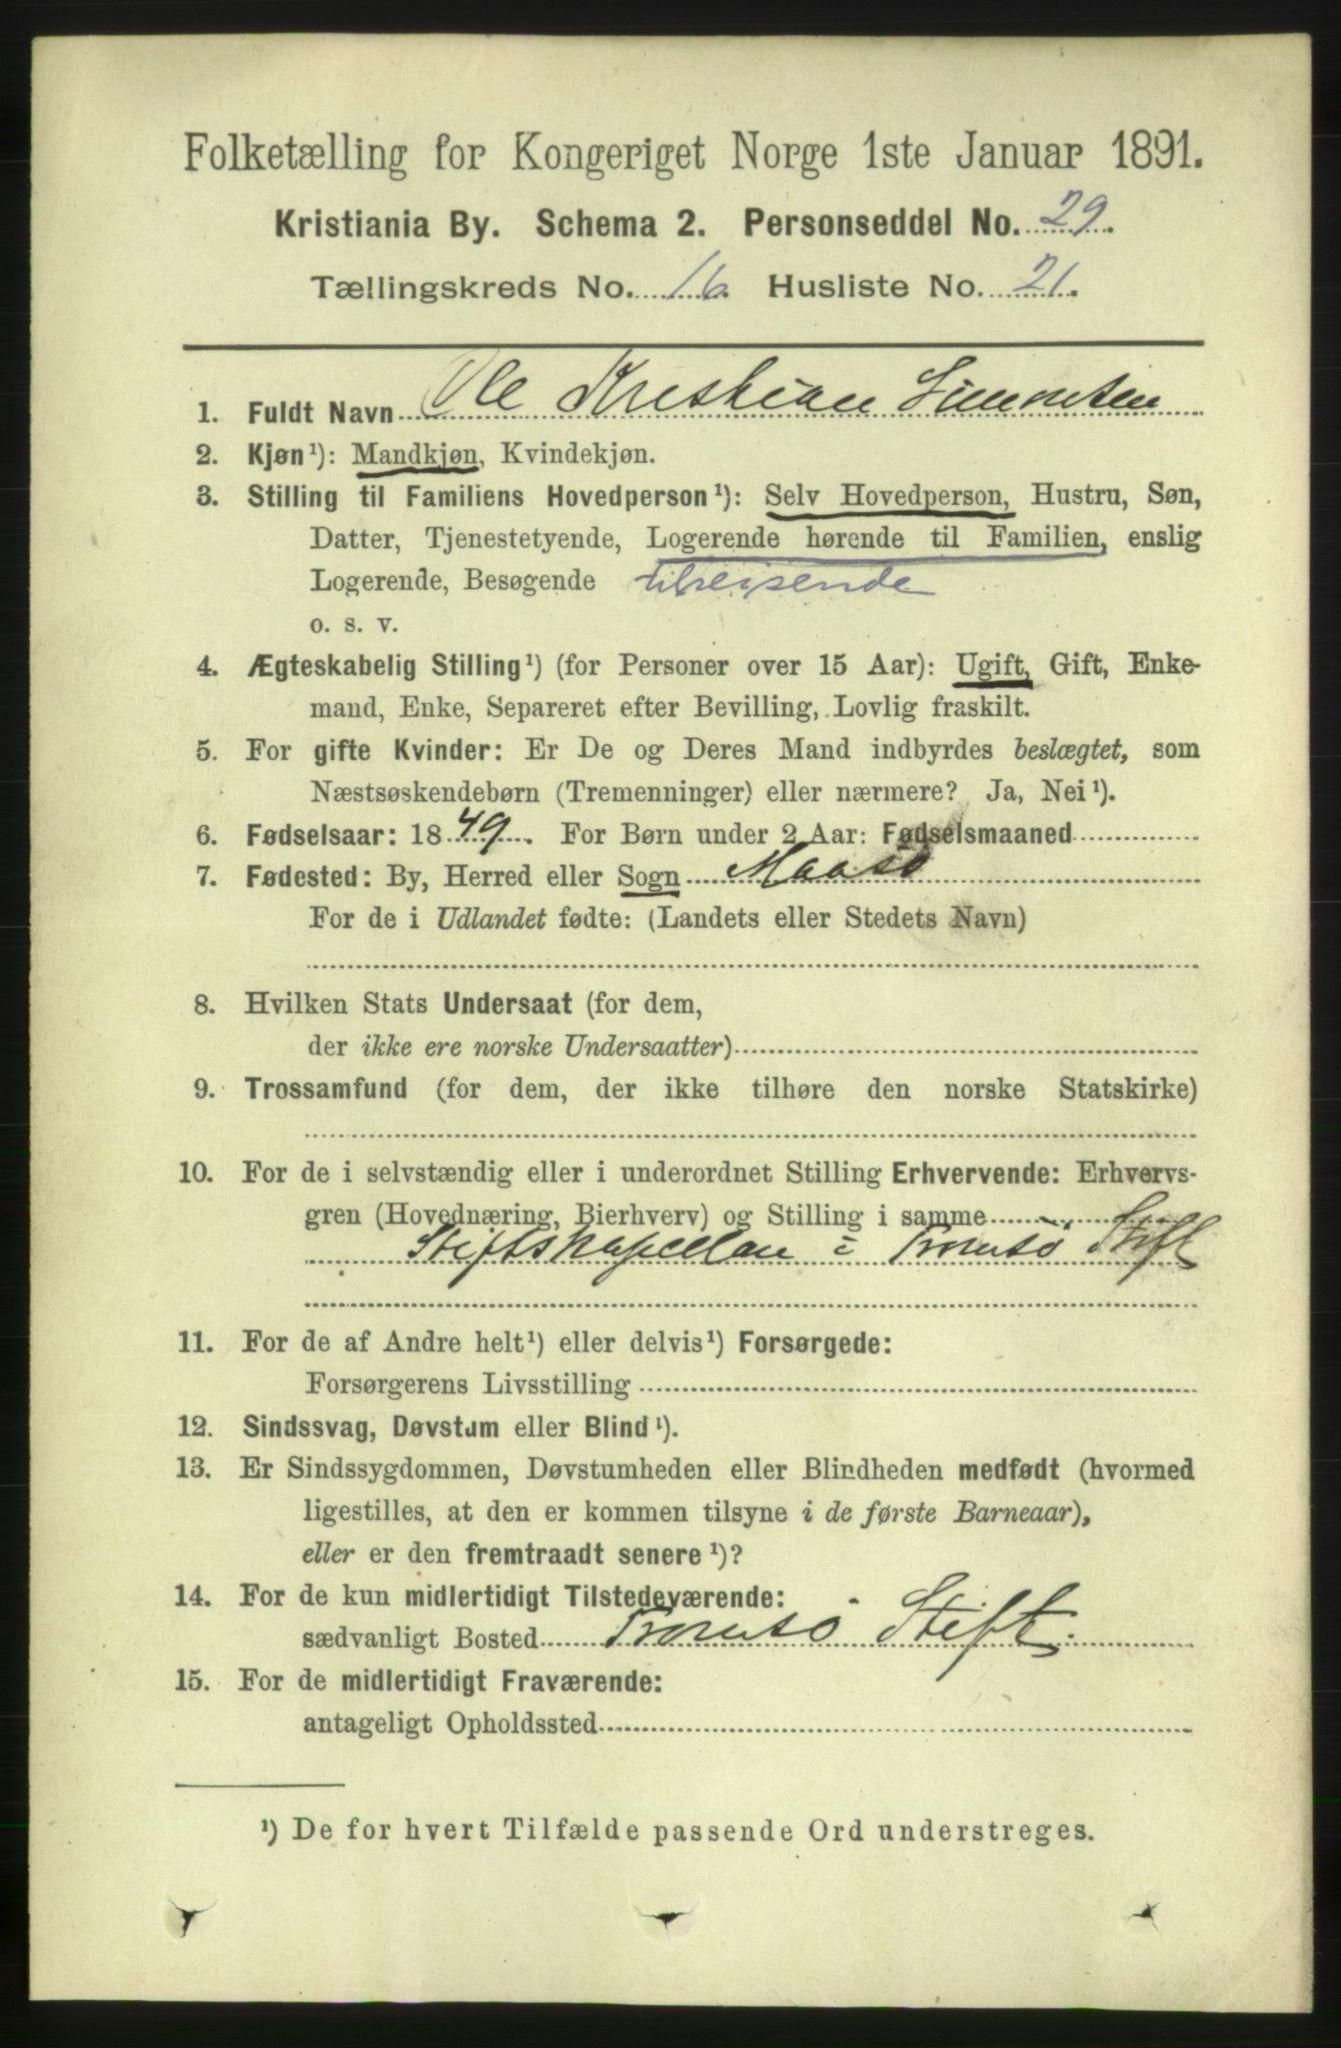 Folketælling for Kongeriget Norge 1ste Januar 1891.
Kristiania By. Schema 2. Personseddel No. 29.
Tællingskreds No. 16. Husliste No. 21.
1. Fuldt Navn Ole Kristian Simonsen
2. Kjøn¹): Mandkjøn, Kvindekjøn.
3. Stilling til Familiens Hovedperson¹): Selv Hovedperson, Hustru, Søn,
Datter, Tjenestetyende, Logerende hørende til Familien, enslig
Logerende, Besøgende tilreisende
o. s. v.
4. Ægteskabelig Stilling¹) (for Personer over 15 Aar): Ugift, Gift, Enke-
mand, Enke, Separeret efter Bevilling, Lovlig fraskilt.
5. For gifte Kvinder: Er De og Deres Mand indbyrdes beslægtet, som
Næstsøskendebørn (Tremenninger) eller nærmere? Ja, Nei¹).
6. Fødselsaar: 1849. For Børn under 2 Aar: Fødselsmaaned
7. Fødested: By, Herred eller Sogn Maasø
For de i Udlandet fødte: (Landets eller Stedets Navn)
8. Hvilken Stats Undersaat (for dem,
der ikke ere norske Undersaatter)
9. Trossamfund (for dem, der ikke tilhøre den norske Statskirke)
10. For de i selvstændig eller i underordnet Stilling Erhvervende: Erhvervs-
gren (Hovednæring, Bierhverv) og Stilling i samme
Stiftskapellan i Tromsö Stift
11. For de af Andre helt¹) eller delvis¹) Forsørgede:
Forsørgerens Livsstilling
12. Sindssvag, Døvstum eller Blind¹).
13. Er Sindssygdommen, Døvstumheden eller Blindheden medfødt (hvormed
ligestilles, at den er kommen tilsyne i de første Barneaar),
eller er den fremtraadt senere¹)?
14. For de kun midlertidigt Tilstedeværende:
sædvanligt Bosted Tromsö Stift.
15. For de midlertidigt Fraværende:
antageligt Opholdssted
¹) De for hvert Tilfælde passende Ord understreges.